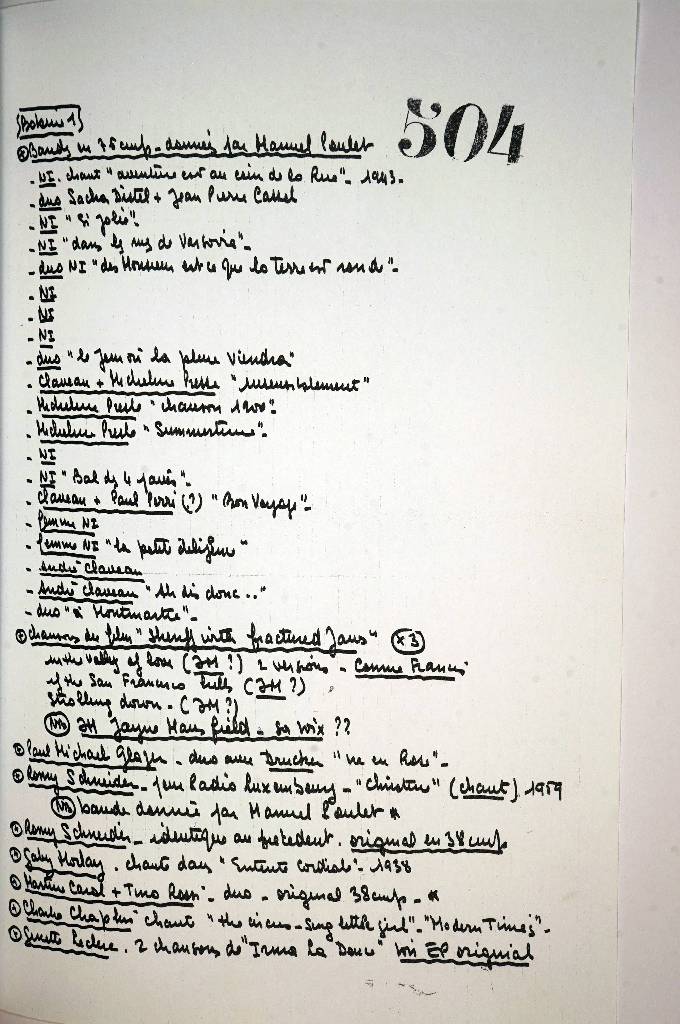 504
⊙ Bands en 75 cm/s - donnés par Manuel Poulet
- NI. chant "aventure est au coin de la Rue" - 1943.
- duo Sacha Distel + Jean Pierre Cassel
- NI "Si jolie".
- NI "dans les rues de Varsovie".
- duo NI "des Monsieur est ce que la Terre est ronde".
- NI
- NI
- NI
- duo "le jour où la pluie viendra"
- Claveau + Micheline Presle "insensiblement"
- Micheline Presle "chanson 1900".
- Micheline Presle "Summertime".
- NI
- NI "Bal des 4 pavés".
- Claveau + Paul Perri (?) "Bon Voyage".
- femme NI
- femme NI "la petite diligence"
- André Claveau
- André Claveau "Ah dis donc .."
- duo "à Montmartre".
⊙ chansons du film "Sheriff with fractured Jaws" (x3)
in the valley of love (JM ?) 2 versions - Connie Francis
if the San Francisco hills (JM ?)
Strolling down - (JM ?)
JM Jayne Mansfield - sa voix ??
⊙ Paul Michael Glaser - duo avec Drucker "vie en Rose".
⊙ Romy Schneider - pour Radio Luxembourg - "Christine" (chant) 1959
bande donnée par Manuel Poulet *
⊙ Romy Schneider - identique au précédent. original en 38 cm/s
⊙ Gaby Morlay. chante dans "Entente Cordiale" - 1938
⊙ Martine Carol + Tino Rossi - duo - original 38 cm/s - *
⊙ Charlie Chaplin chante "the circus - sing little girl" - "Modern Times".
⊙ Ginette Leclerc. 2 chansons de "Irma La Douce" voir EP original